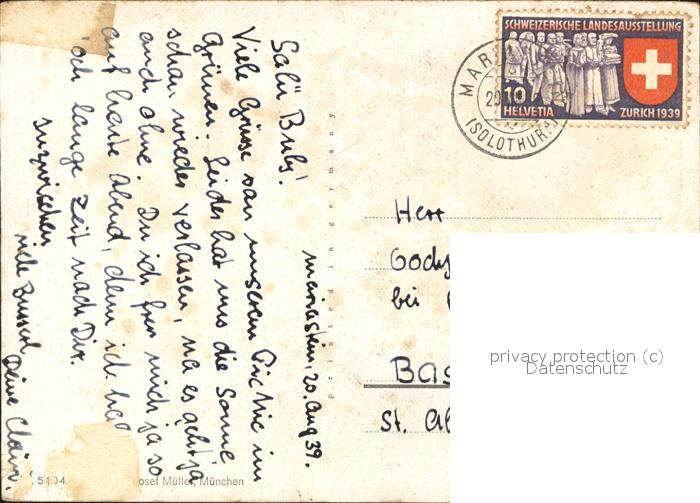 Mariastein, 20. Aug 39.
Salü Buby!
Viele Grüsse von unserem Picknic im
Grünen. Leider hat uns die Sonne
schon wieder verlassen, na es geht ja
auch ohne. Du ich freu mich ja so
auf heute Abend, denn ich hab
doch lange Zeit nach Dir.
Inzwischen
viele Bussel
Deine Clairi.
SCHWEIZERISCHE LANDESAUSSTELLUNG
10
HELVETIA
ZURICH 1939
MAR
20
(SOLOTHURN)
Herr
bei
Bas
St. Al
printed in germany
5104.
Josef Müller, München
privacy protection (c)
Datenschutz